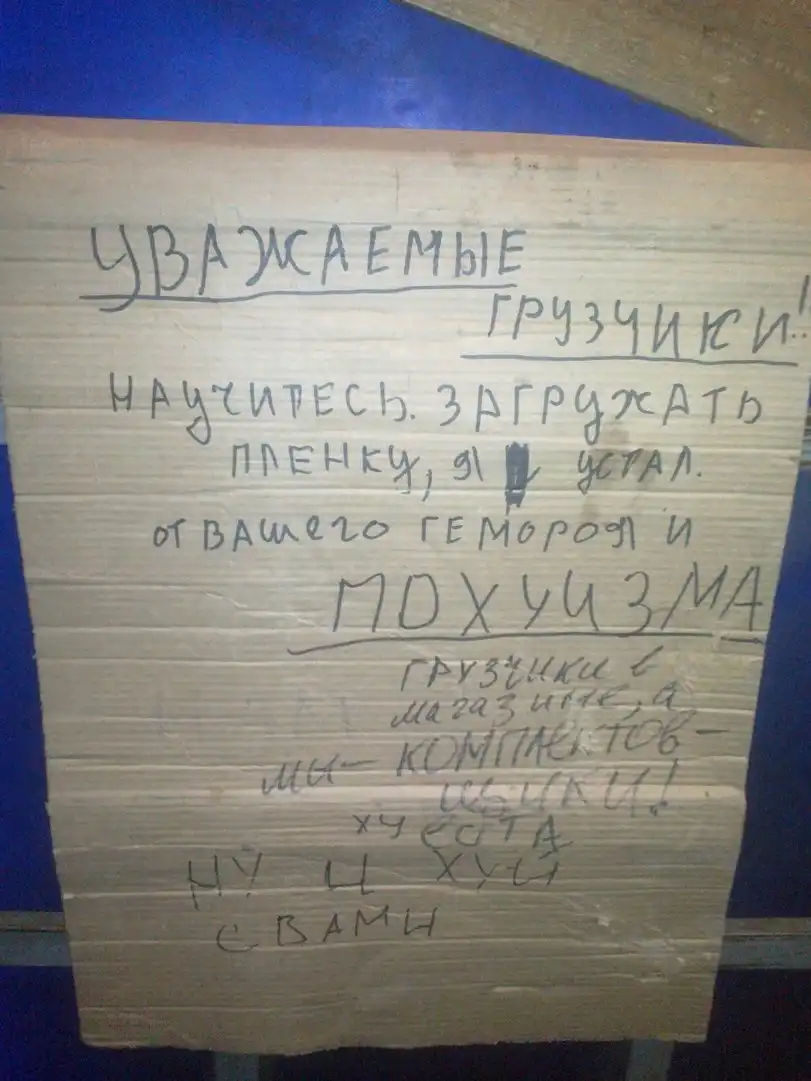 УВАЖАЕМЫЕ
ГРУЗЧИКИ!
НАУЧИТЕСЬ. ЗАГРУЖАТЬ
ПЛЕНКУ, Я УСТАЛ.
ОТ ВАШЕГО ГЕМОРОЯ И
ПОХУИЗМА
ГРУЗЧИКИ в
магазине, а
мы — КОМПЛЕКТОВ-
ЩИКИ!
ХУЕСОТА
НУ И ХУЙ
С ВАМИ